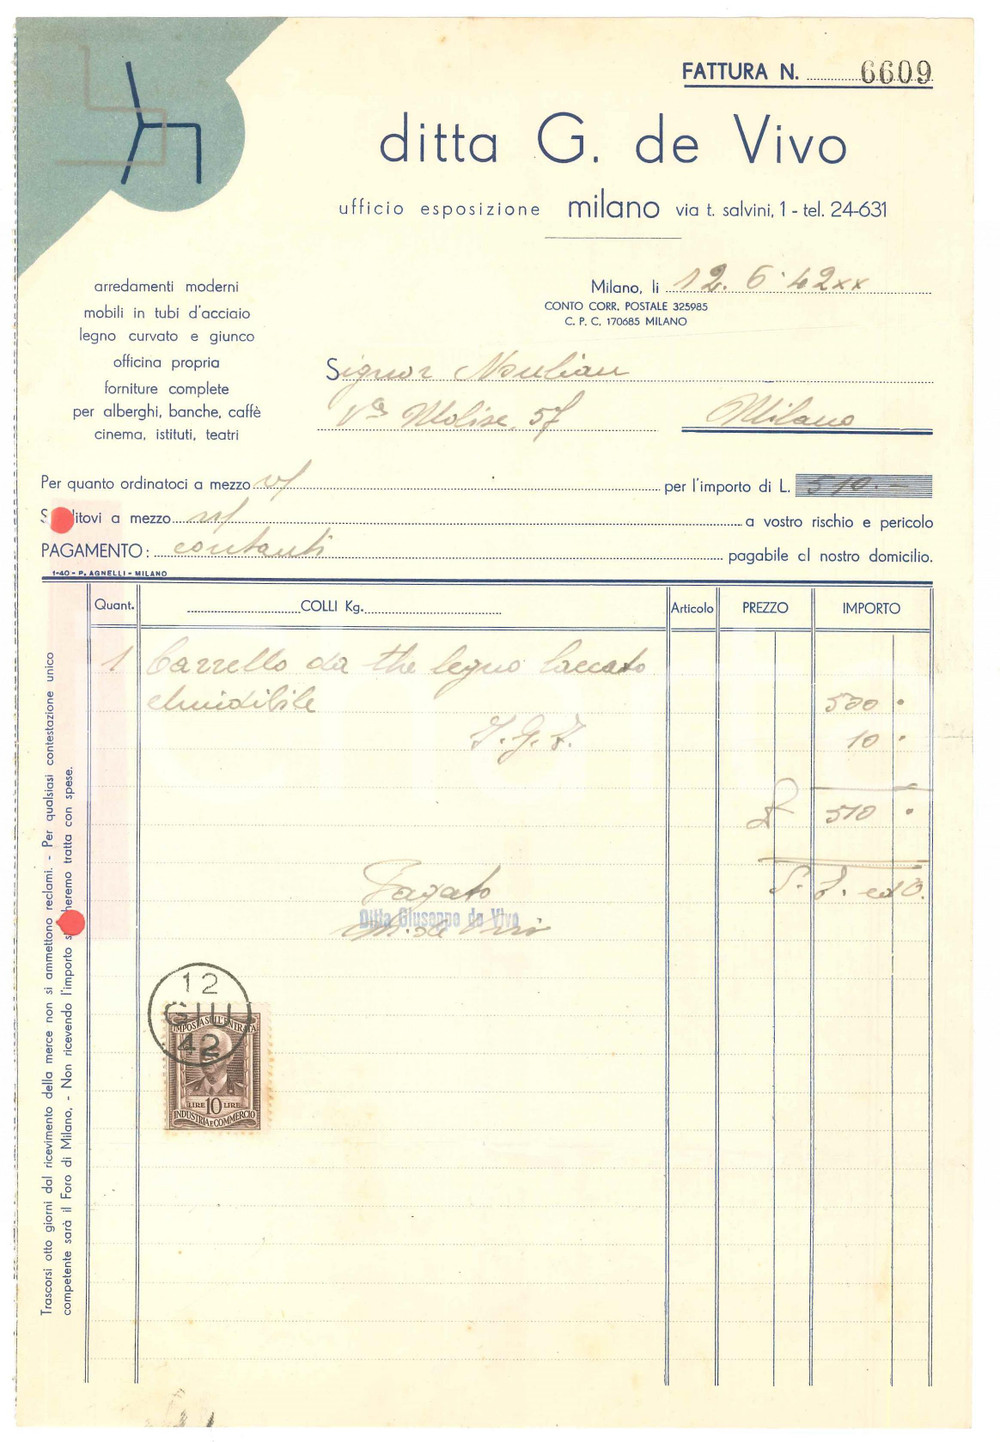 FATTURA N. 6609
ditta G. de Vivo
ufficio esposizione milano via t. salvini, 1 - tel. 24-631
arredamenti moderni
mobili in tubi d'acciaio
legno curvato e giunco
officina propria
forniture complete
per alberghi, banche, caffè
cinema, istituti, teatri
Milano, li 12. 6. 42 xx
CONTO CORR. POSTALE 325985
C. P. C. 170685 MILANO
Signor
Via Molise 57 Milano
Per quanto ordinatoci a mezzo v/ per l'importo di L. 510.-
a mezzo a vostro rischio e pericolo
PAGAMENTO: contanti pagabile al nostro domicilio.
1-40 - P. AGNELLI - MILANO
Quant. COLLI Kg. Articolo PREZZO IMPORTO
1 Carrello da the legno laccato
chiudibile 500 .
I.G.E. 10 .
£ 510 .
S. E. ed O.
Pagato
Ditta Giuseppe de Vivo
12
GIU
42
IMPOSTA SULL'ENTRATA
LIRE 10 LIRE
INDUSTRIA E COMMERCIO
Trascorsi otto giorni dal ricevimento della merce non si ammettono reclami. - Per qualsiasi contestazione unico
competente sarà il Foro di Milano. - Non ricevendo l'importo tratta con spese.